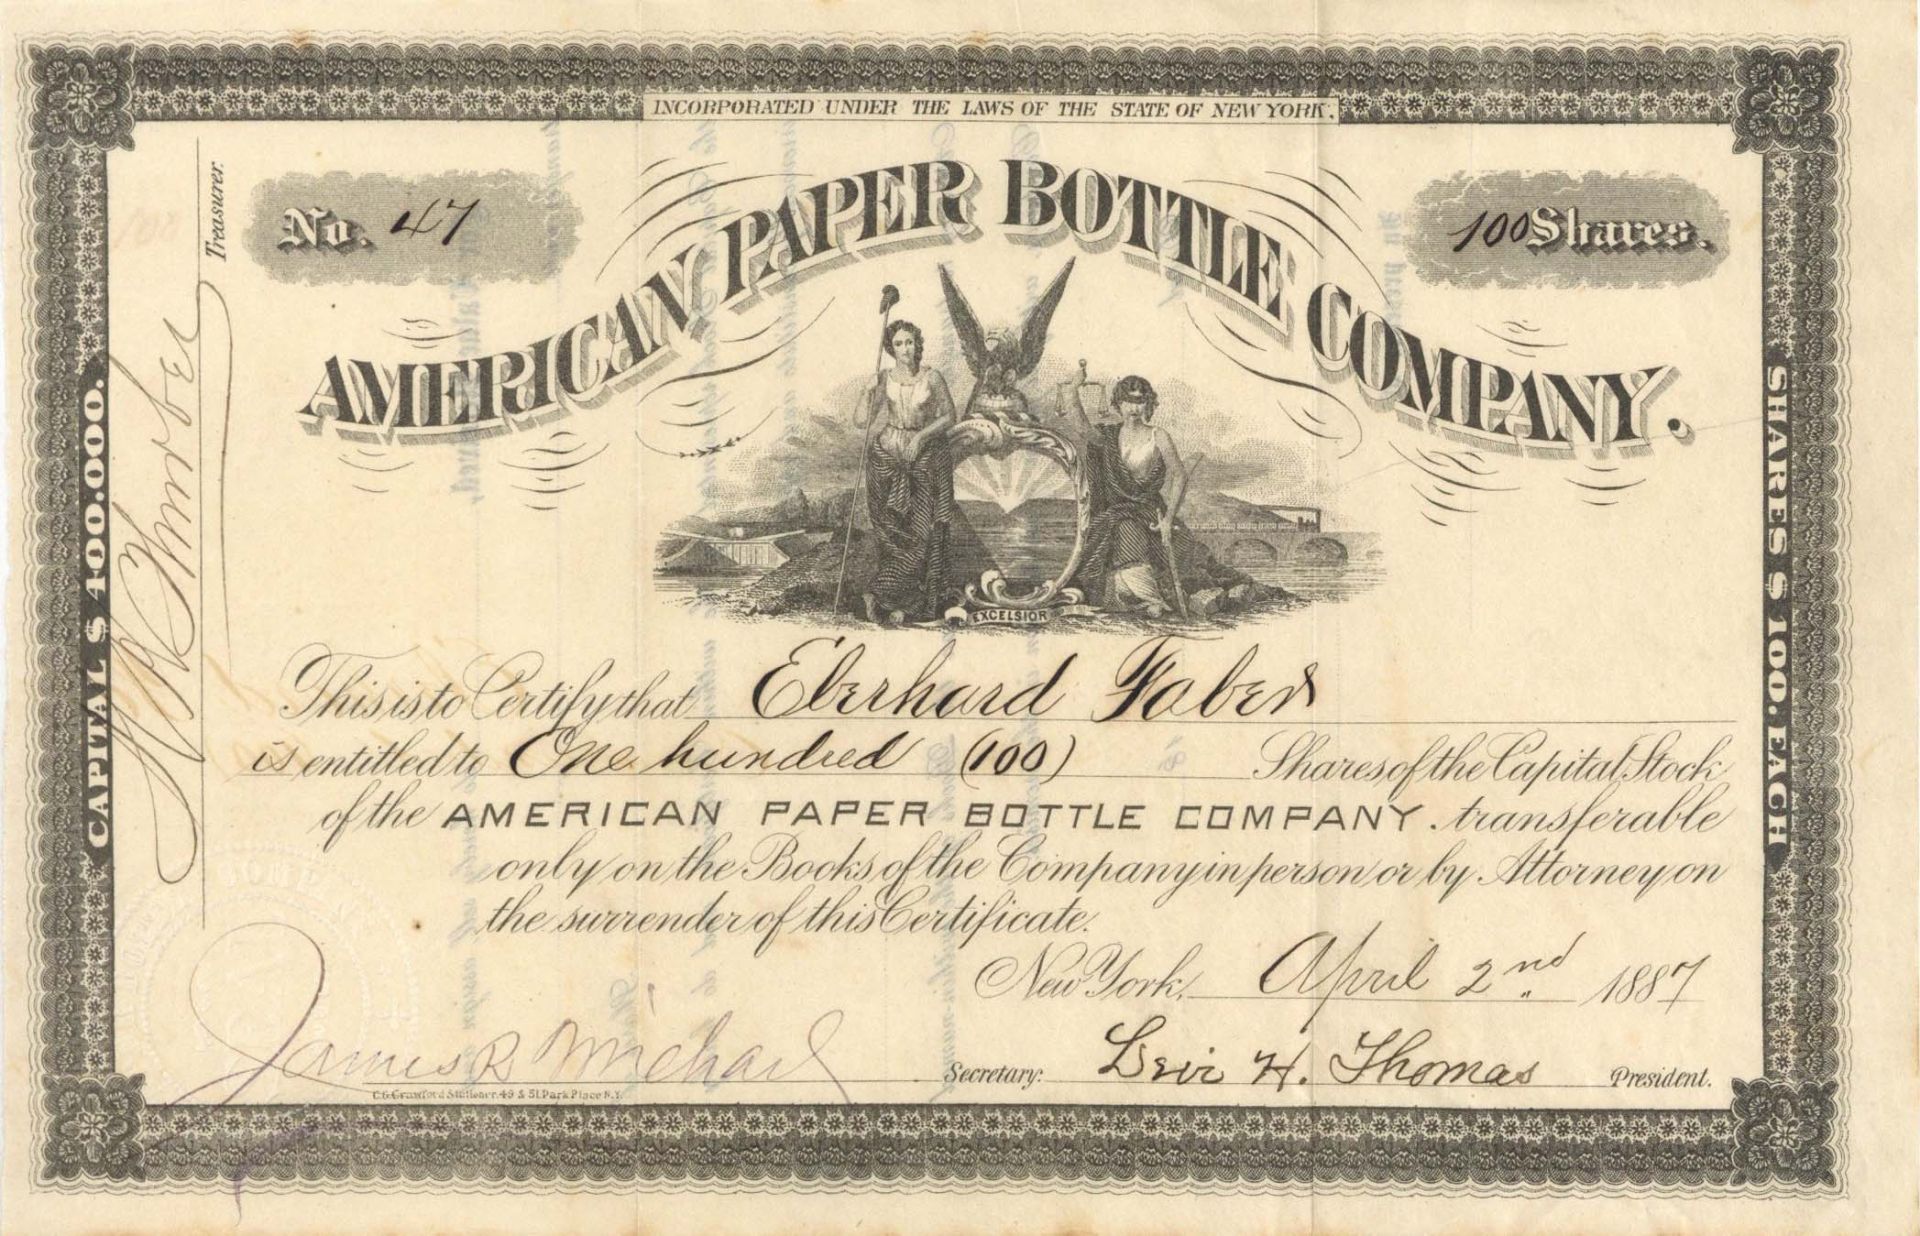 INCORPORATED UNDER THE LAWS OF THE STATE OF NEW YORK.
No. 47
100 Shares.
AMERICAN PAPER BOTTLE COMPANY.
EXCELSIOR
This is to Certify that Eberhard Faber
is entitled to One hundred (100) Shares of the Capital Stock
of the AMERICAN PAPER BOTTLE COMPANY. transferable
only on the Books of the Company in person or by Attorney on
the surrender of this Certificate.
New York, April 2nd 1887
James R Michael Secretary.
Levi H. Thomas President.
C.G. Crawford Stationer. 49 & 51. Park Place N.Y.
Treasurer.
CAPITAL $ 400.000.
SHARES $ 100. EACH